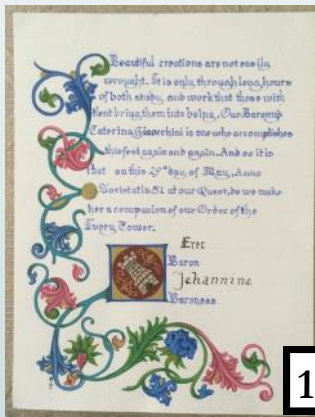 Beautiful creations are not easily
wrought. It is only through long hours
of both study and work that those with
talent bring them into being. Our Baroness
Caterina is one who accomplishes
this feat again and again. And so it is
that on this day of May, Anno
Societatis 51 at our Quest, do we make
her a companion of our Order of the
Ivory Tower.
Eret
Baron
Jehannine
Baroness
1